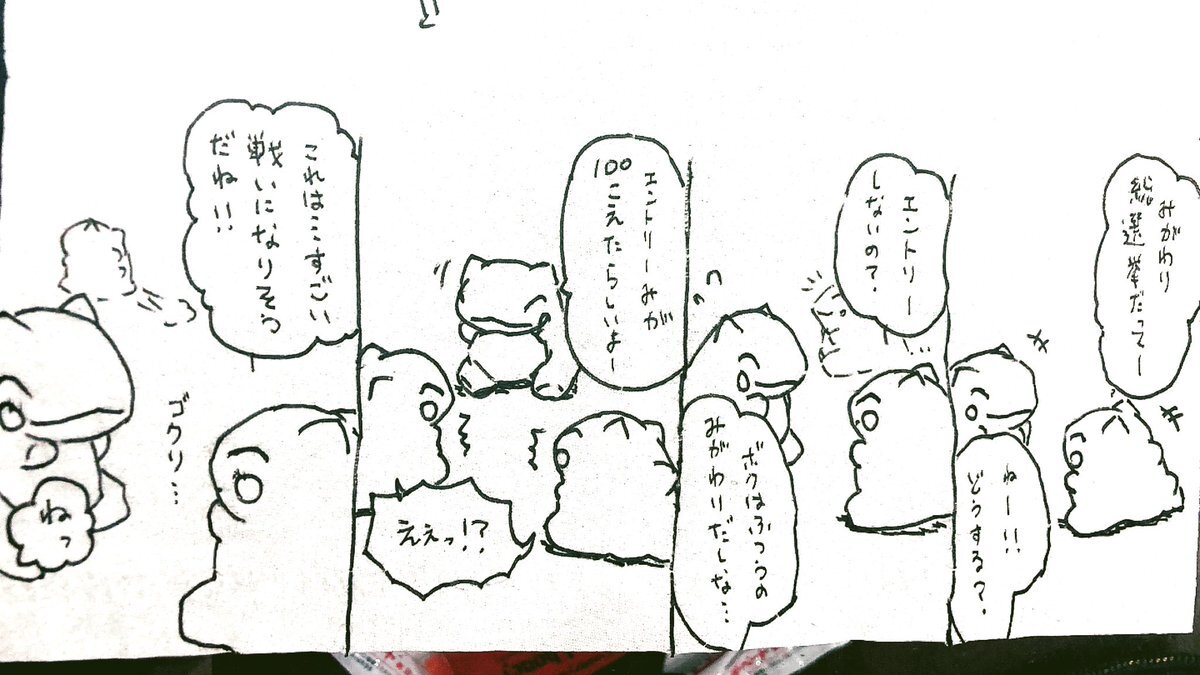 みがわり
総選挙だってー
ねー!!
どうする?
エントリー
しないの?
ボクはふつうの
みがわりだしな…
エントリーみが
100
こえたらしいよー
ええっ!?
これはこすごい
戦いになりそう
だね!!
ゴクリ…
ねっ